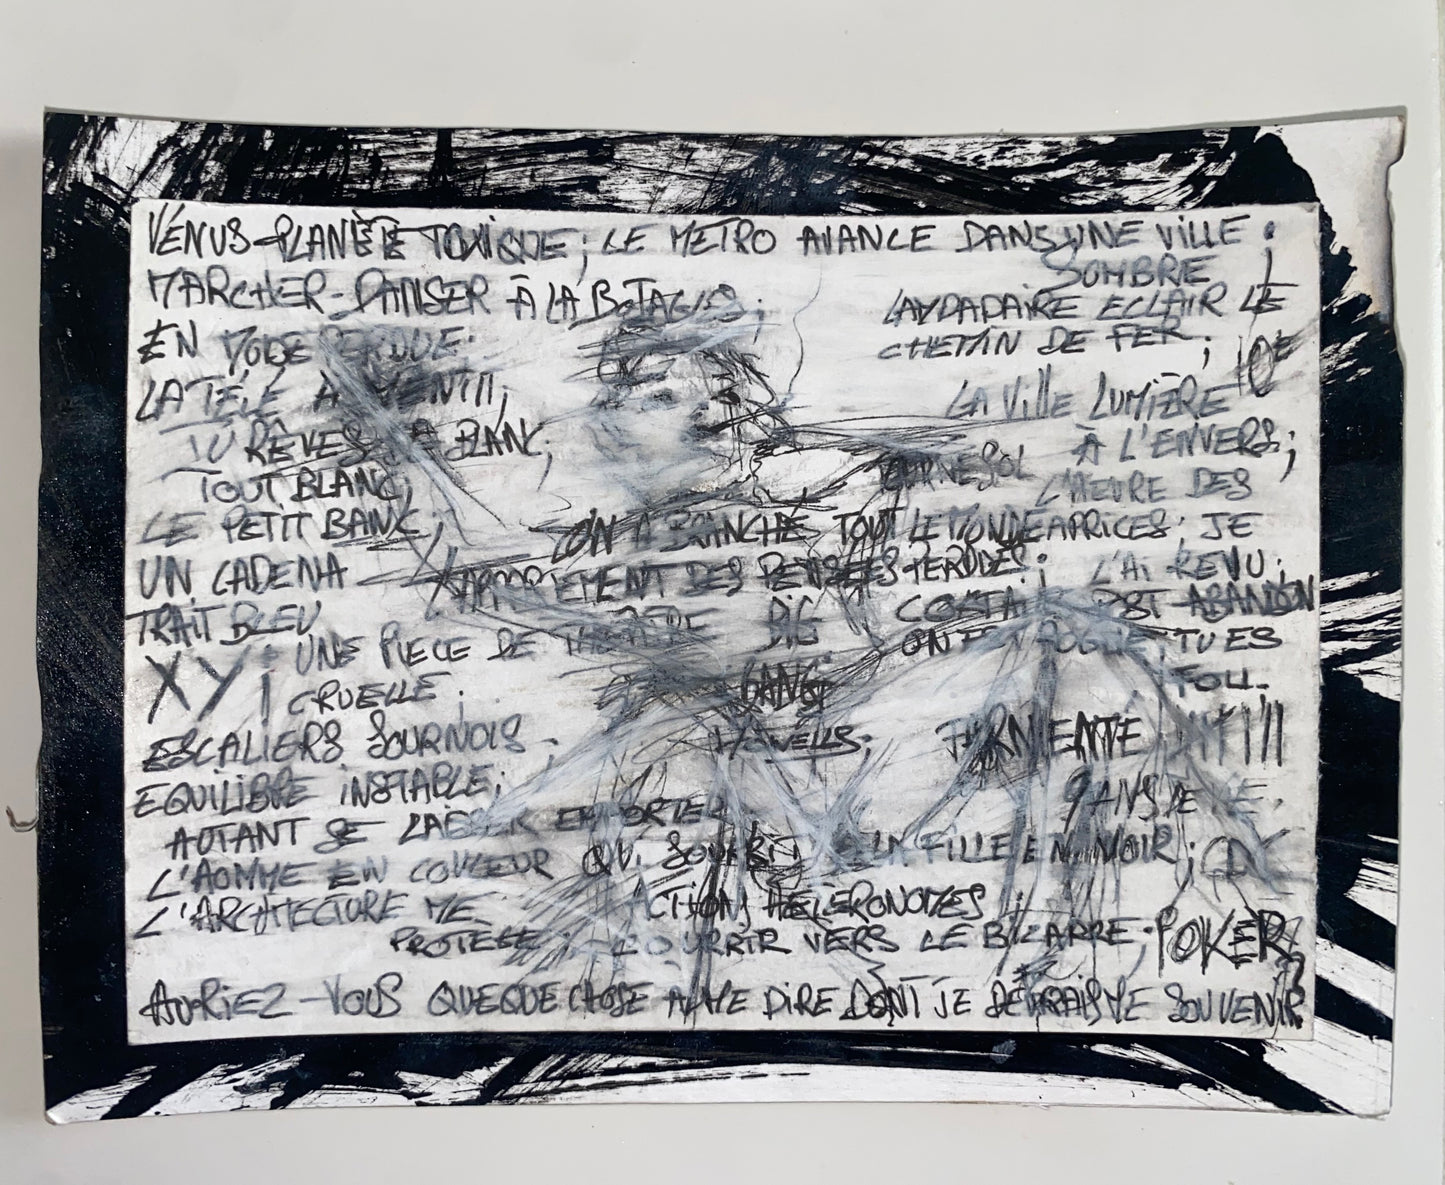 VÉNUS PLANÈTE TOXIQUE; LE METRO AVANCE DANS UNE VILLE
SOMBRE
MARCHER-DANSER À LA
LAMPADAIRE ECLAIR LE
EN
CHEMIN DE FER;
10E
LA TÉLÉ A MENTI!!;
LA VILLE LUMIÈRE
TU RÊVES BLANC;
À L'ENVERS;
TOUT BLANC,
TOURNESOL
L'HEURE DES
LE PETIT BANC;
ON A BRANCHÉ TOUT LE MONDE APRICES; JE
UN CADENA
APPARTEMENT DES PENSÉES PERDUES;
L'AI REVU;
TRAIT BLEU
BIG
POST-ABANDON
XY; UNE PIECE DE THEATRE
TU ES
CRUELLE.
GANG
FOLL.
ESCALIERS SOURNOIS
EQUILIBRE INSTABLE;
9 ANS DE
AUTANT SE LAISSER EMPORTER
L'HOMME EN COULEUR QUI SOURIT LA FILLE EN NOIR;
L'ARCHITECTURE ME
ACTIONS HÉTÉRONOMES
PROTEGE; COURRIR VERS LE BIZARRE; POKER
AURIEZ-VOUS QUEQUE CHOSE A ME DIRE DONT JE DEVRAIS ME SOUVENIR